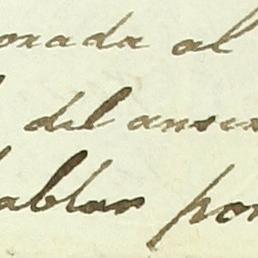 orada al
del anex
hablar por